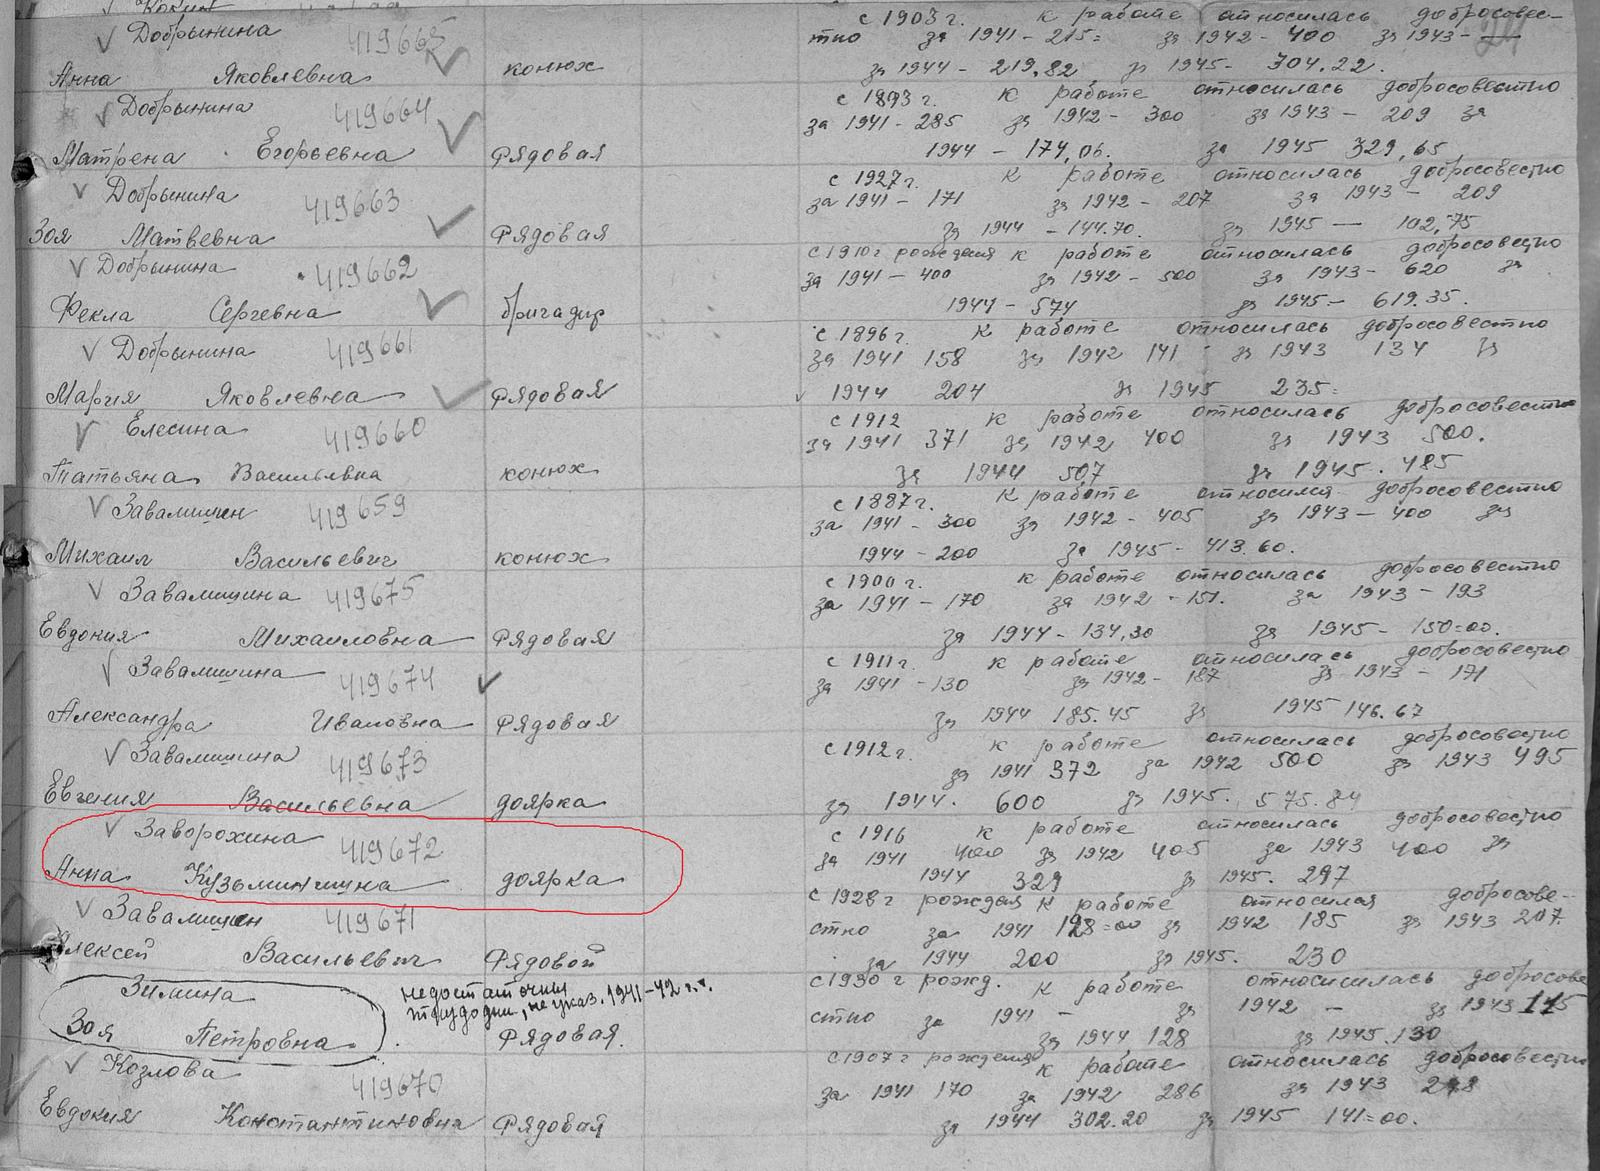 Добрынина 419665 с 1903 г. к работе относилась добросовес-
тно за 1941 - 215= за 1942 - 400 за 1943 - —
Анна Яковлевна конюх за 1944 - 219.82 за 1945 - 304.22.
Добрынина 419664 с 1893 г. к работе относилась добросовестно
за 1941 - 285 за 1942 - 300 за 1943 - 209 за
Матрена Егорьевна Рядовая 1944 - 174,06. за 1945 329,65
Добрынина 419663 с 1927 г. к работе относилась добросовестно
за 1941 - 171 за 1942 - 207 за 1943 - 209
Зоя Матвевна Рядовая за 1944 - 144.70. за 1945 — 102,75
Добрынина 419662 с 1910 г рождения к работе относилась добросовестно
за 1941 - 400 за 1942 - 500 за 1943 - 620 за
Фекла Сергевна бригадир 1944 - 574 за 1945 - 619.35.
Добрынина 419661 с 1896 г. к работе относилась добросовестно
за 1941 158 за 1942 141 за 1943 134 за
Мария Яковлевна Рядовая 1944 204 за 1945 235=
Елесина 419660 с 1912 к работе относилась добросовестно
за 1941 371 за 1942 400 за 1943 500.
Татьяна Васильевна конюх за 1944 507 за 1945. 485
Завалишен 419659 с 1887 г. к работе относился добросовестно
за 1941 - 300 за 1942 - 405 за 1943 - 400 за
Михаил Васильевич конюх 1944 - 200 за 1945 - 413.60.
Завалишина 419675 с 1900 г. к работе относилась добросовестно
за 1941 - 170 за 1942 - 151. за 1943 - 193
Евдокия Михаиловна Рядовая за 1944 - 134,30 за 1945 - 150=00.
Завалишина 419674 с 1911 г. к работе относилась добросовестно
за 1941 - 130 за 1942 - 187 за 1943 - 171
Александра Ивановна Рядовая за 1944 185.45 за 1945 146.67
Завалишина 419673 с 1912 г. к работе относилась добросовестно
за 1941 372 за 1942 500 за 1943 495
Евгения Васильевна доярка за 1944. 600 за 1945. 575.84
Заворохина 419672 с 1916 к работе относилась добросовестно
за 1941 400 за 1942 405 за 1943 400 за
Анна Кузьминишна доярка 1944 329 за 1945. 297
Завалишен 419671 с 1928 г рождения к работе относился добросове-
стно за 1941 198=00 за 1942 185 за 1943 207.
Алексей Васильевич Рядовой за 1944 200 за 1945. 230
Зимина недостаточны с 1930 г рожд. к работе относисилась добросове
трудодни, не указ. 1941-42 г.г. стно за 1941 - за 1942 - за 1943 115
Зоя Петровна Рядовая. за 1944 128 за 1945. 130
Козлова 419670 с 1907 г рождения к работе относилась добросовестно
за 1941 170 за 1942 286 за 1943
Евдокия Константиновна Рядовая за 1944 302.20 за 1945 141=00.